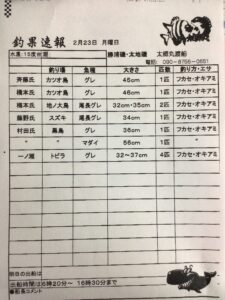 釣果速報 2月23日 月曜日
水温:15度台 勝浦磯・太地磯 太郎丸渡船
電話:090-8756-0651
釣り場 魚種 大きさ 匹数 釣り方・エサ
斉藤氏 カツオ島 グレ 45cm 1匹 フカセ・オキアミ
橋本氏 カツオ島 グレ 46cm 1匹 フカセ・オキアミ
橋本氏 地ノ大島 尾長グレ 32cm・35cm 2匹 フカセ・オキアミ
藤野氏 スズキ 尾長グレ 34cm 1匹 フカセ・オキアミ
村田氏 黒島 グレ 36cm 1匹 フカセ・オキアミ
〃 〃 マダイ 56cm 1匹 フカセ・オキアミ
一ノ瀬 トビラ グレ 32~37cm 4匹 フカセ・オキアミ
明日の出船は
出船時間は6時20分~ 16時30分まで
●船長コメント